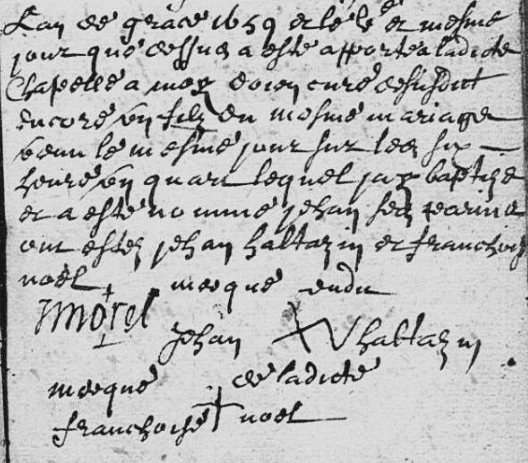 L'an de grace 1659 et le le et mesme
jour que dessus a esté apporté a ladicte
Chapelle a moy doien curé desusdit
encore un filz du mesme mariage
venu le mesme jour sur les six
heure un quart lequel jay baptizé
et a esté nommé jehan ses parins
ont estez jehan haltazin et franchoise
noël merque dudit
Jmorel
Jehan haltazin
merque de ladicte
franchoise noël